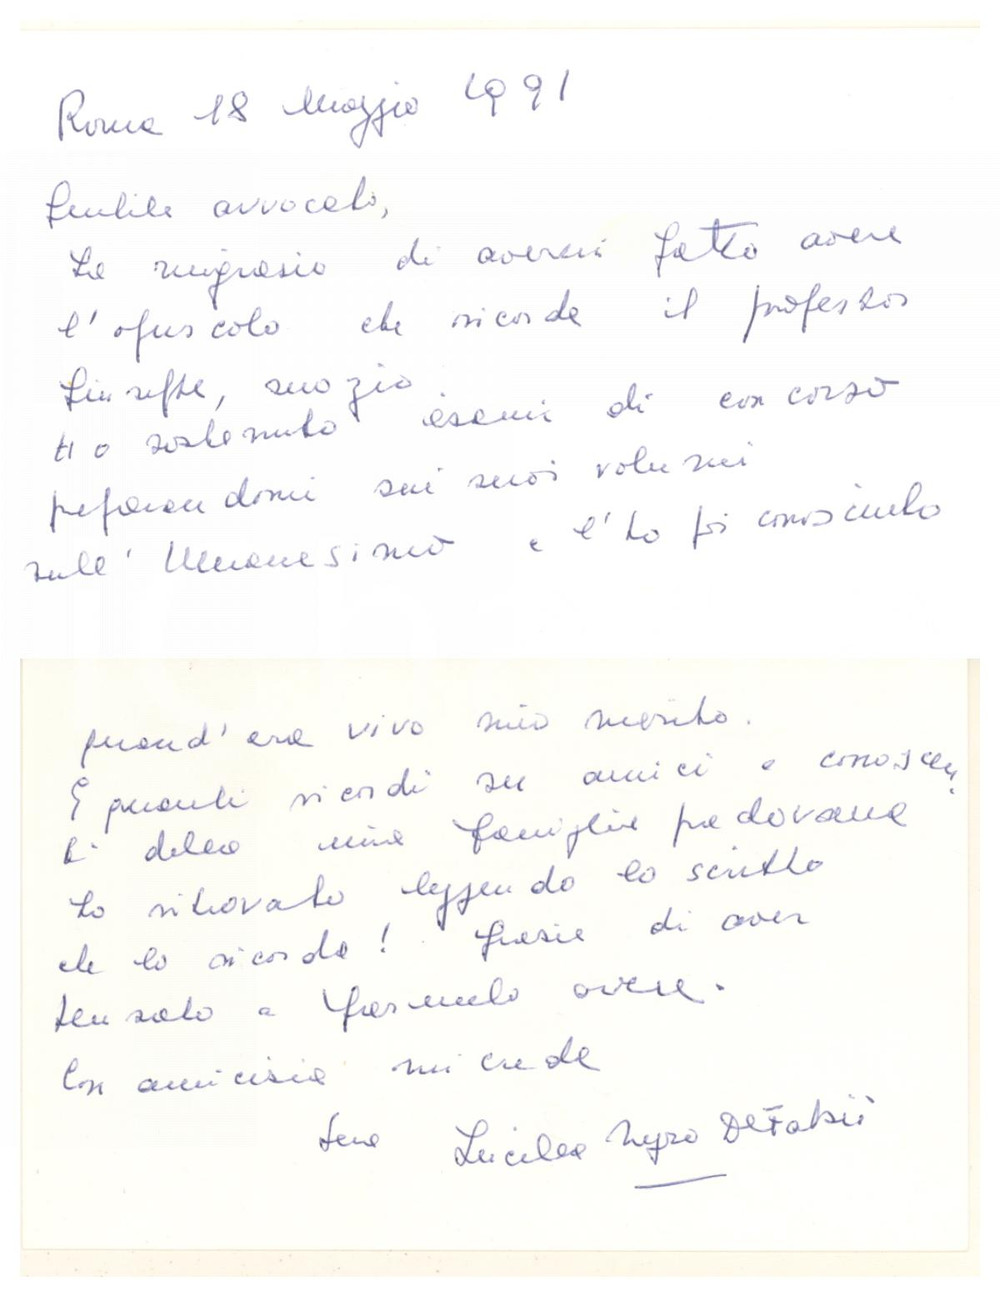 Roma 18 Maggio 1991
Gentile avvocato,
La ringrazio di avermi fatto avere
l'opuscolo che ricorda il professor
Giuseppe, suo zio.
Ho sostenuto esami di concorso
preparandomi sui suoi volumi
sull' Umanesimo e l'ho poi conosciuto
quand'era vivo mio marito.
E quanti ricordi su amici e conoscen
ti della mia famiglia padovana
ho ritrovato leggendo lo scritto
che lo ricorda! Grazie di aver
pensato a farmelo avere.
Con amicizia mi creda
Sua Lucilla De Fabii